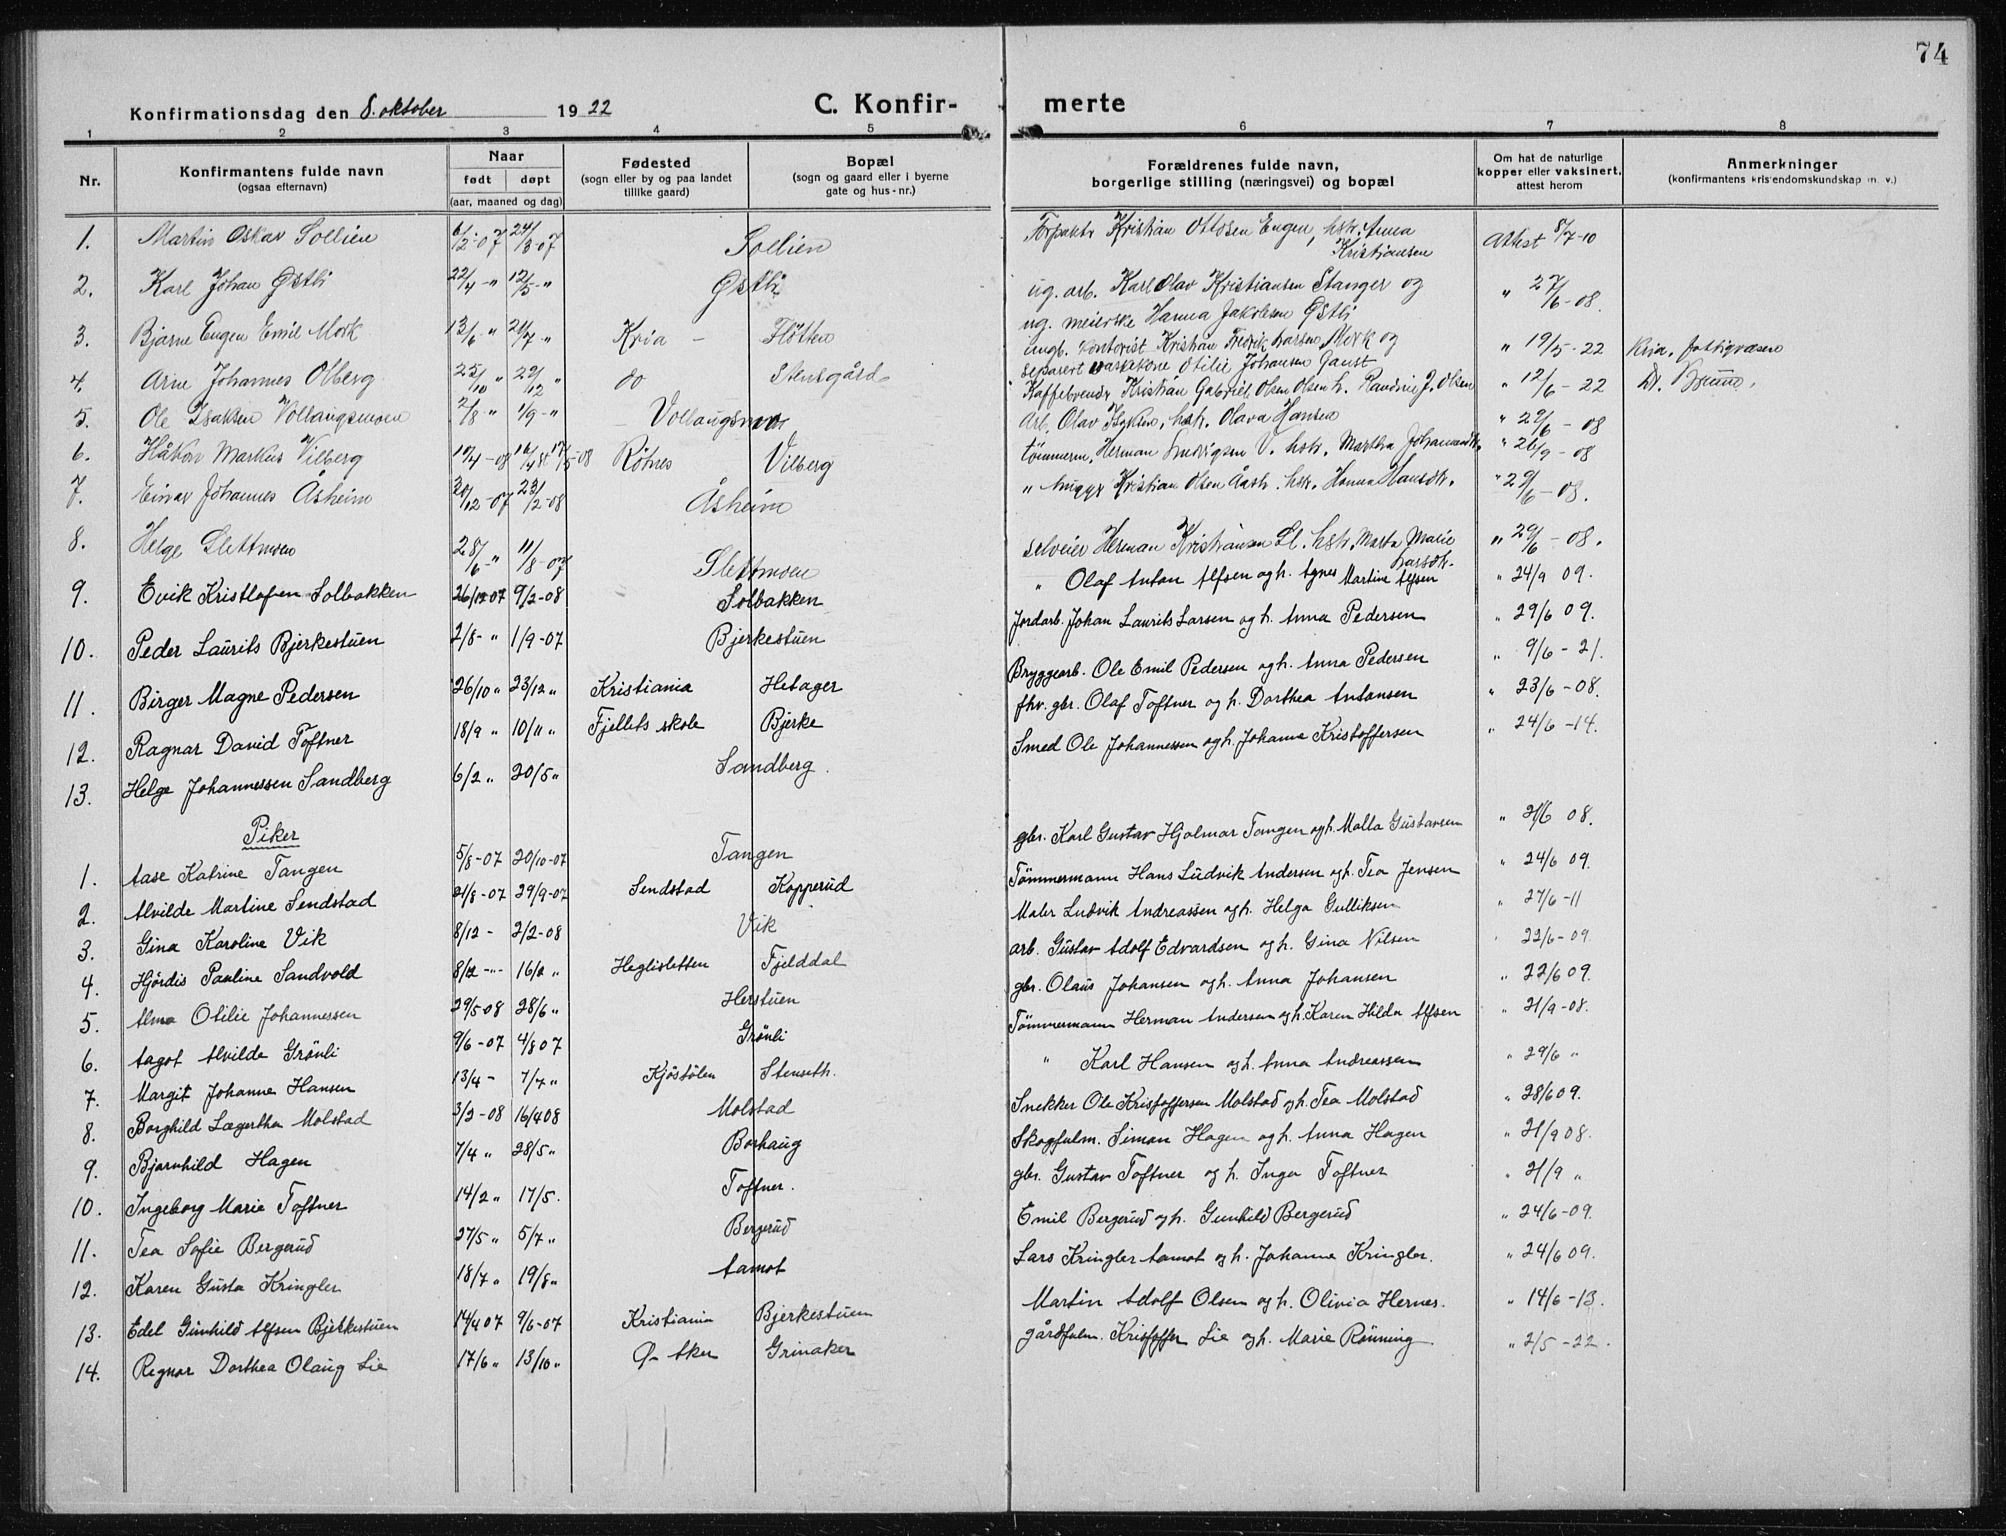 74
Konfirmationsdag den 8. oktober 1922 C. Konfirmerte
1 2 3 4 5 6 7 8
Nr. | Konfirmantens fulde navn (ogsaa efternavn) | Naar født døpt (aar, maaned og dag) | Fødested (sogn eller by og paa landet tillike gaard) | Bopæl (sogn og gaard eller i byerne gate og hus-nr.) | Forældrenes fulde navn, borgerlige stilling (næringsvei) og bopæl | Om hat de naturlige kopper eller vaksinert, attest herom | Anmerkninger (konfirmantens kristendomskundskap m. v.)
1. Martin Oskar Sollien 6/2-07 24/3-07 Sollien Forpakter Kristian Ottosen Engen, hstr. Anna Kristiansen Attest 8/7-10
2. Karl Johan Østli 22/4 -" 12/5 -" Østli ug. arb. Karl Olav Kristiansen Stanger og ug. meierske Hanna Jakobsen Østli " 27/6-08.
3. Bjarne Eugen Emil Mork 13/6 " 21/7 " Kria - Fløtten ungk. kontorist Kristian Fredrik Larsen Mork og separert Otilie Johansen Gaust " 19/5-22 Kria. fattigvæsen
4. Arne Johannes Olberg 25/10 " 29/12 " do Stensgård Kaffebrender Kristian Gabriel Olsen Olsen h. Randine J. Olsen " 12/6-22 Dr. Bruun.
5. Ole Isaksen Vollaugsmoen 2/8 -" 1/9 -" Vollaugsmoen Arb. Olav hstr. Olava Hansen " 29/6-08
6. Håkon Markus Vilberg 10/4-08 16/4 st 17/5-08 Røtnes Vilberg tømmerm. Herman Ludvigsen V. hstr. Martha Johannesdtr. " 26/9-08
7. Einar Johannes Åsheim 20/12-07 23/2-08 Åsheim " hugger Kristian Olsen Åsh. hstr. Hanna Hansdtr. " 29/6-08.
8. Helge Slettmoen 28/6-" 11/8-07 Slettmoen selveier Herman Kristiansen Sl. hstr. Marta Marie Larsdtr. " 29/6-08.
9. Erik Kristlofen Solbakken 26/12 07 9/2-08 Solbakken " Olaf Anton Alfsen og h. Agnes Martine Alfsen " 24/9 09.
10. Peder Laurits Bjerkestuen 2/8- " 1/9-07 Bjerkestuen Jordarb. Johan Laurits Larsen og h. Anna Pedersen " 29/6 09.
11. Birger Magne Pedersen 26/10 " 23/12 " Kristiania Hetager Bryggearb. Ole Emil Pedersen og h. Anna Pedersen " 9/6-21.
12. Ragnar David Toftner 18/9 " 10/11 " Fjellets skole Bjerke fhv. gbr. Olaf Toftner og h. Dorthea Antonsen " 23/6-08.
13. Helge Johannessen Sandberg 6/2 " 20/5 " Sandberg. Smed Ole Johannessen og h. Johanne Kristoffersen " 24/6-14.
Piker
1. Aase Katrine Tangen 5/8-07 20/10-07 Tangen gbr. Karl Gustav Hjalmar Tangen og h. Malla Gustavsen " 21/6 08.
2. Alvilde Martine Sendstad 21/8-07 29/9-07 Sendstad Kopperud Tømmermann Hans Ludvik Andersen og h. Tea Jensen " 24/6 09.
3. Gina Karoline Vik 8/12 - 2/2-08 Vik Maler Ludvik Andreassen og h. Helga Gulliksen " 27/6-11
4. Hjørdis Pauline Sandvold 8/2 -"- 16/2 " Heglisletten Fjelddal arb. Gustav Adolf Edvardsen og h. Gina Nilsen " 22/6-09.
5. Alma Otilie Johannessen 29/5 08 28/6 " Herstuen gbr. Olaus Johansen og h. Anna Johansen " 22/6 09.
6. Aagot Alvilde Grønli 9/6-07 4/8 07 Grønli Tømmermann Herman Andersen og h. Karen Hilda Alfsen " 21/9-08.
7. Margit Johanne Hansen 13/4 - 7/7 " Kjøstølen Stenseth. " Karl Hansen og h. Anna Andreassen " 29/6 "
8. Borghild Lægertha Molstad 3/2-08 16/4 08 Molstad Snekker Ole Kristoffersen Molstad og h. Tea Molstad " 28/6 09.
9. Bjarnhild Hagen 7/4 " 28/5 " Borhaug Skogfulm. Simon Hagen og h. Anna Hagen " 21/9 08.
10. Ingeborg Marie Toftner 14/2 " 17/5. Toftner. gbr. Gustav Toftner og h. Inga Toftner " 21/9 "
11. Tea Sofie Bergerud 27/5 " 5/7 " Bergerud Emil Bergerud og h. Gunhild Bergerud " 24/6-09.
12. Karen Gusta Kringler 18/7 " 19/8 " Aamot Lars Kringler Aamot og h. Johanne Kringler. " 24/6 09.
13. Edel Gunhild Alfsen Bjerkestuen 14/4 07 9/6-07 Kristiania Bjerkestuen Martin Adolf Olsen og h. Olivia Hernes. " 14/6-13.
14. Regnor Dorthea Olaug Lie 17/6 " 13/10 " Ø- Aker Grinaker gårdfulm. Kristoffer Lie og h. Marie Rønning " 2/5-22.